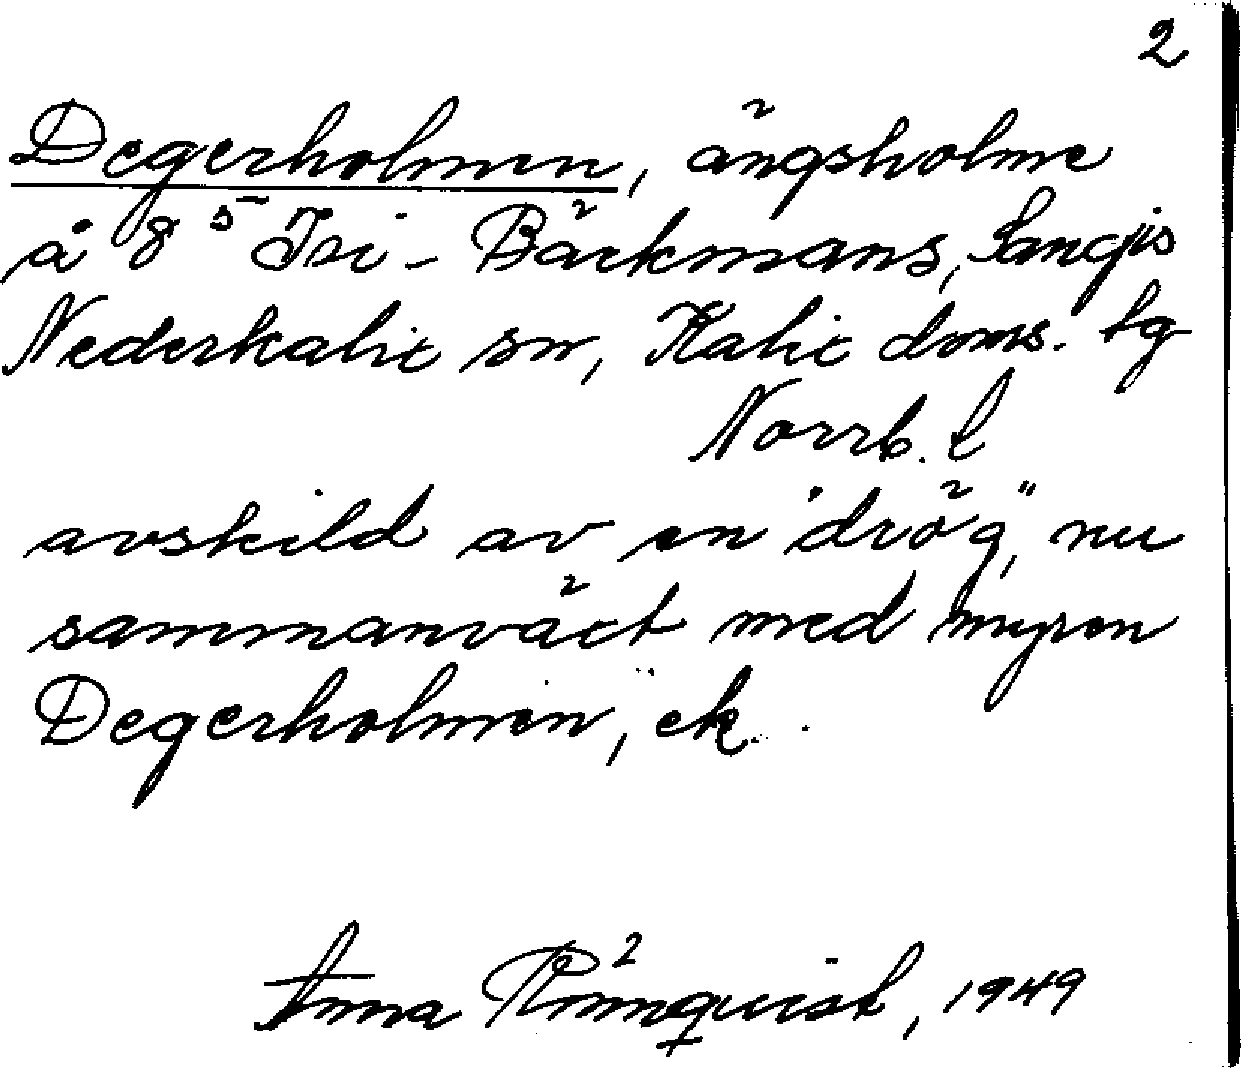 2
Degerholmen, ängsholme
å 8⁵ Isi-Bäckmans, Sangis
Nederkalix sn, Kalix doms. tg
Norrb. l
avskild av en "drög", nu
sammanväxt med myren
Degerholmen, ek.
Anna Rönnquist, 1949